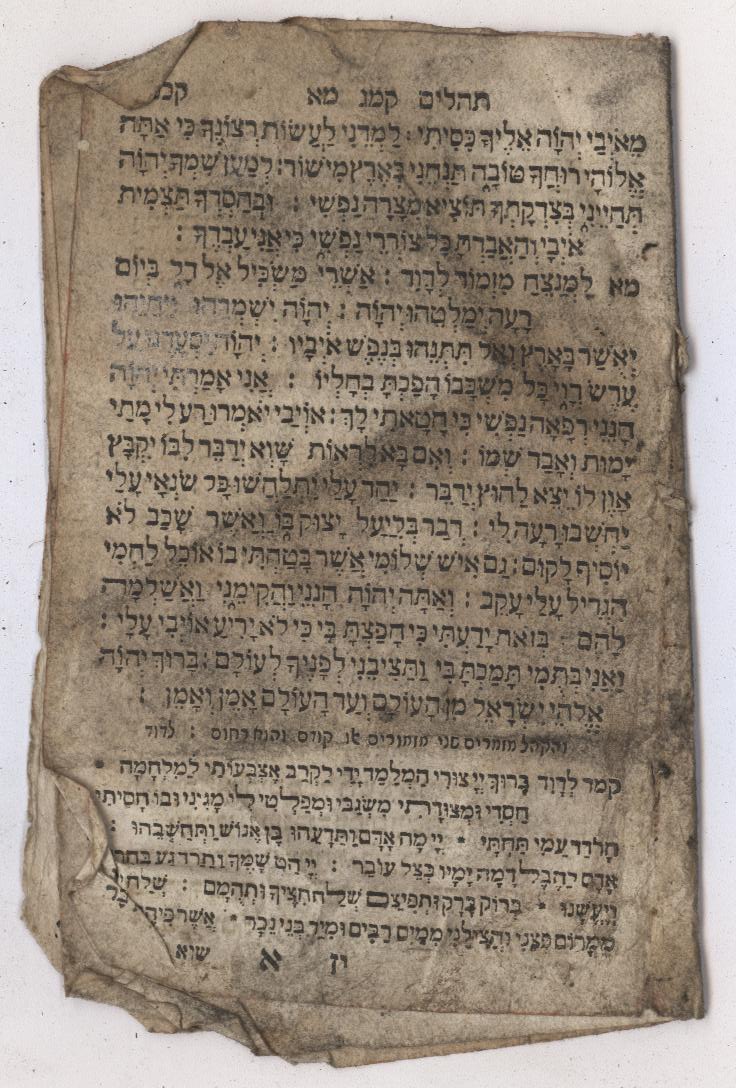 תהלים קמג מא
מֵאֹיְבַי יְהוָֹה אֵלֶיךָ כִסִּיתִי : לַמְּדֵנִי לַעֲשׂוֹת רְצוֹנֶךָ כִּי אַתָּה
אֱלוֹהָי רוּחֲךָ טוֹבָה תַּנְחֵנִי בְּאֶרֶץ מִישׁוֹר : לְמַעַן שִׁמְךָ יְהוָֹה
תְּחַיֵּינִי בְּצִדְקָתְךָ תּוֹצִיא מִצָּרָה נַפְשִׁי : וּבְחַסְדְּךָ תַּצְמִית
אֹיְבָי וְהַאֲבַדְתָּ כָּל צוֹרְרֵי נַפְשִׁי כִּי אֲנִי עַבְדֶּךָ :
מא לַמְנַצֵּחַ מִזְמוֹר לְדָוִד : אַשְׁרֵי מַשְׂכִּיל אֶל דָּל בְּיוֹם
רָעָה יְמַלְּטֵהוּ יְהוָֹה : יְהוָֹה יִשְׁמְרֵהוּ וִיחַיֵּהוּ
יְאֻשַּׁר בָּאָרֶץ וְאַל תִּתְּנֵהוּ בְּנֶפֶשׁ אֹיְבָיו : יְהוָֹה יִסְעָדֶנּוּ עַל
עֶרֶשׂ דְּוָי כָּל מִשְׁכָּבוֹ הָפַכְתָּ בְחָלְיוֹ : אֲנִי אָמַרְתִּי יְהוָֹה
חָנֵּנִי רְפָאָה נַפְשִׁי כִּי חָטָאתִי לָךְ : אוֹיְבַי יֹאמְרוּ רַע לִי מָתַי
יָמוּת וְאָבַד שְׁמוֹ : וְאִם בָּא לִרְאוֹת שָׁוְא יְדַבֵּר לִבּוֹ יִקְבָּץ
אָוֶן לוֹ יֵצֵא לַחוּץ יְדַבֵּר : יַחַד עָלַי יִתְלַחֲשׁוּ כָּל שׂנְאָי עָלַי
יַחְשְׁבוּ רָעָה לִי : דְּבַר בְּלִיַּעַל יָצוּק בּוֹ וַאֲשֶׁר שָׁכַב לֹא
יוֹסִיף לָקוּם : גַּם אִישׁ שְׁלוֹמִי אֲשֶׁר בָּטַחְתִּי בוֹ אוֹכֵל לַחְמִי
הִגְדִּיל עָלַי עָקֵב : וְאַתָּה יְהוָֹה חָנֵּנִי וַהֲקִימֵנִי וַאֲשַׁלְּמָה
לָהֶם : בְּזֹאת יָדַעְתִּי כִּי חָפַצְתָּ בִּי כִּי לֹא יָרִיעַ אוֹיְבִי עָלָי :
וַאֲנִי בְּתֻמִּי תָּמַכְתָּ בִּי וַתַּצִּיבֵנִי לְפָנֶיךָ לְעוֹלָם : בָּרוּךְ יְהוָֹה
אֱלֹהֵי יִשְׂרָאֵל מִן הָעוֹלָם וְעַד הָעוֹלָם אָמֵן וְאָמֵן :
והקהל מזמרים שני מזמורים אלו קודם והוא רחום : לדוד
קמד לְדָוִד בָּרוּךְ יְיָ צוּרִי הַמְלַמֵּד יָדַי לַקְרָב אֶצְבְּעוֹתַי לַמִּלְחָמָה •
חַסְדִּי וּמְצוּדָתִי מִשְׂגַּבִּי וּמְפַלְטִי לִי מָגִינִּי וּבוֹ חָסִיתִי
הָרוֹדֵד עַמִּי תַחְתָּי • יְיָ מָה אָדָם וַתֵּדָעֵהוּ בֶּן אֱנוֹשׁ וַתְּחַשְּׁבֵהוּ :
אָדָם לַהֶבֶל דָּמָה יָמָיו כְּצֵל עוֹבֵר : יְיָ הַט שָׁמֶיךָ וְתֵרֵד גַּע בֶּהָרִים
וְיֶעֱשָׁנוּ • בְּרוֹק בָּרָק וּתְפִיצֵם שְׁלַח חִצֶּיךָ וּתְהֻמֵּם : שְׁלַח יָדֶיךָ
מִמָּרוֹם פְּצֵנִי וְהַצִּילֵנִי מִמַּיִם רַבִּים וּמִיַּד בְּנֵי נֵכָר • אֲשֶׁר פִּיהֶם דִּבֶּר
יז א שוא